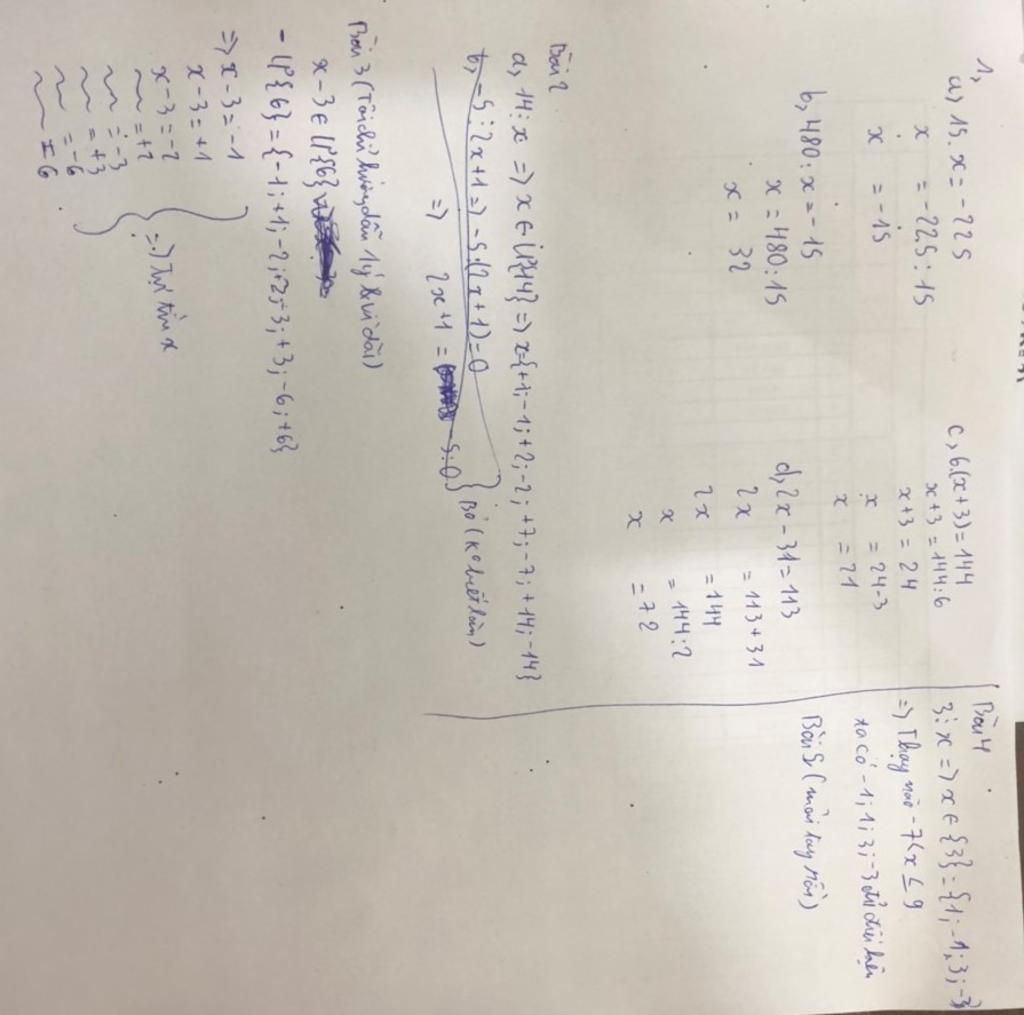 1,
a, 15. x = -225
x = -225 : 15
x = -15
b, 480 : x = -15
x = 480 : 15
x = 32
c, 6.(x+3) = 144
x+3 = 144 : 6
x+3 = 24
x = 24-3
x = 21
d, 2x - 31 = 113
2x = 113 + 31
2x = 144
x = 144 : 2
x = 72
Bài 2
a, 14 : x => x ∈ Ư{14} => x={+1; -1; +2; -2; +7; -7; +14; -14}
b, -5 : 2x+1 => -5.(2x+1) = 0
=> 2x+1 = -5:0 } Bỏ (Ko biết làm)
Bài 3 (Tôi chỉ hướng dẫn 1 ý vì dài)
x-3 ∈ Ư{6}
- Ư{6} = {-1; +1; -2; +2; -3; +3; -6; +6}
=> x-3 = -1
x-3 = +1
x-3 = -2
= +2
= -3
= +3
= -6
= 6
=> Tự tìm x
Bài 4
3 : x => x ∈ {3} = {1; -1; 3; -3}
=> Thay vào -7 < x ≤ 9
ta có -1; 1; 3; -3 đủ điều kiện
Bài 5 (mỏi tay rồi)